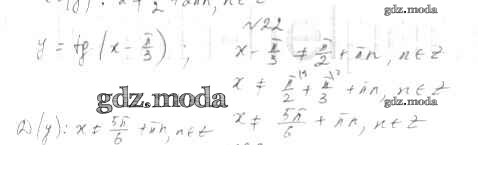 gdz.moda
№22
y = tg (x - π/3) ; x - π/3 ≠ π/2 + πn, n ∈ Z
x ≠ π/2 + π/3 + πn, n ∈ Z
gdz.moda
gdz.moda
D(y): x ≠ 5π/6 + πn, n ∈ Z x ≠ 5π/6 + πn, n ∈ Z